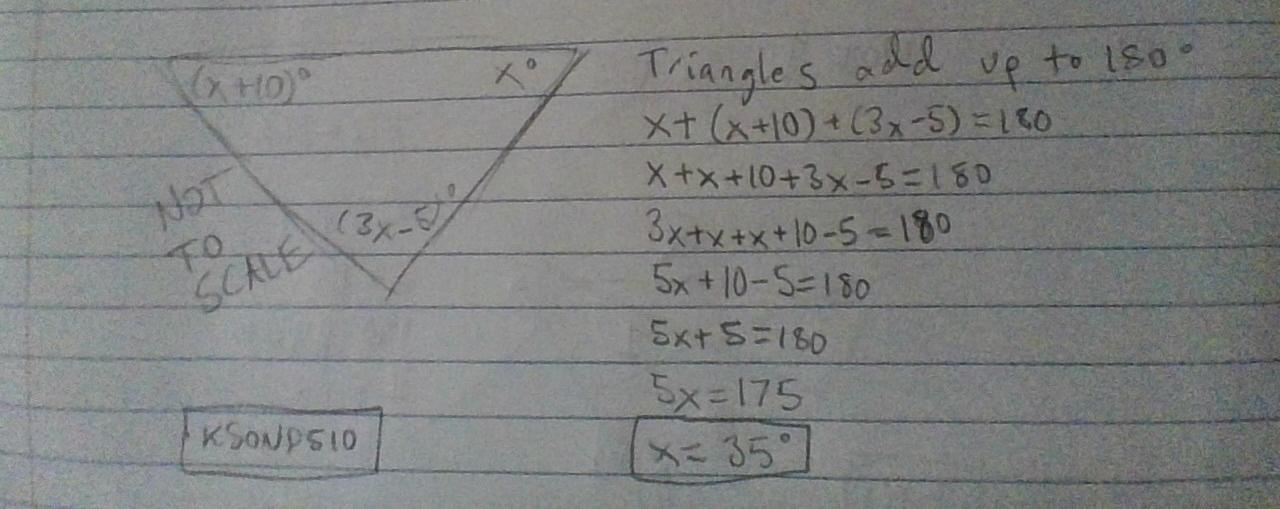 (x+10)°
x°
(3x-5)°
NOT
TO
SCALE
KSONPS10
Triangles add up to 180°
x+(x+10)+(3x-5)=180
x+x+10+3x-5=180
3x+x+x+10-5=180
5x+10-5=180
5x+5=180
5x=175
x=35°